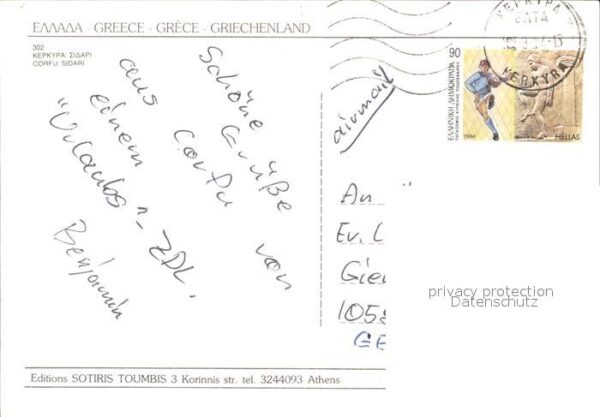 ΕΛΛΑΔΑ - GREECE - GRÈCE - GRIECHENLAND
302
ΚΕΡΚΥΡΑ: ΣΙΔΑΡΙ
CORFU: SIDARI
Schöne Grüße
aus Corfu von
einem
"Urlaubs"- ZDL.
Benjamin
airmail
90
ΕΛΛΗΝΙΚΗ ΔΗΜΟΚΡΑΤΙΑ
1994
HELLAS
ΚΕΡΚΥΡΑ
ΚΕΡΚΥRA
An
Ev.
105
GE
privacy protection
Datenschutz
Editions SOTIRIS TOUMBIS 3 Korinnis str. tel. 3244093 Athens